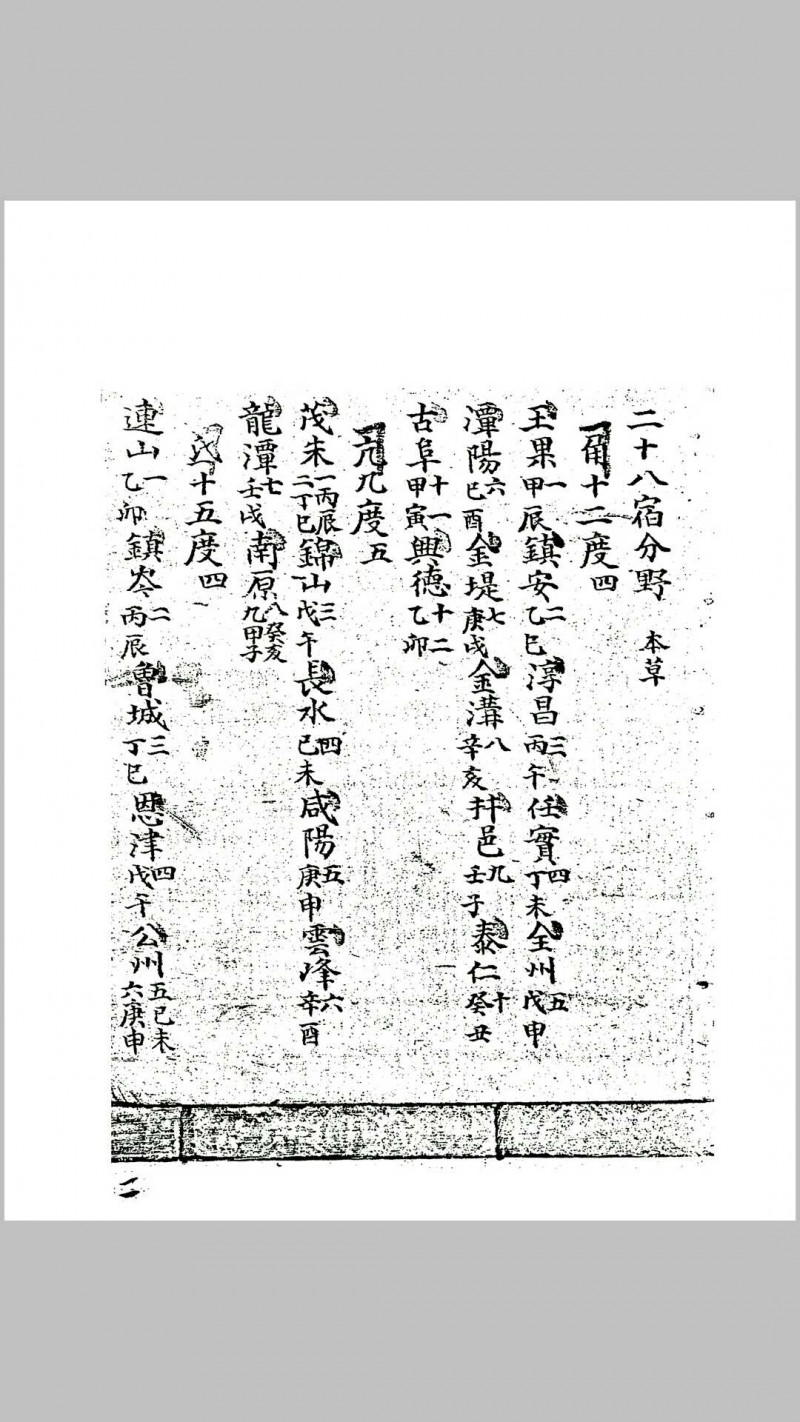 二十八宿分野 本草
角十二度四
玉果一甲辰 鎭安二乙巳 淳昌三丙午 任實四丁未 全州五戊申
潭陽六己酉 金堤七庚戌 金溝八辛亥 井邑九壬子 泰仁十癸丑
古阜十一甲寅 興德十二乙卯
亢九度五
茂朱一丙辰二丁巳 錦山三戊午 長水四己未 咸陽五庚申 雲峰六辛酉
龍潭七壬戌 南原八癸亥九甲子
十五度四
連山一乙卯 鎭岑二丙辰 魯城三丁巳 恩津四戊午 公州五己未六庚申
二